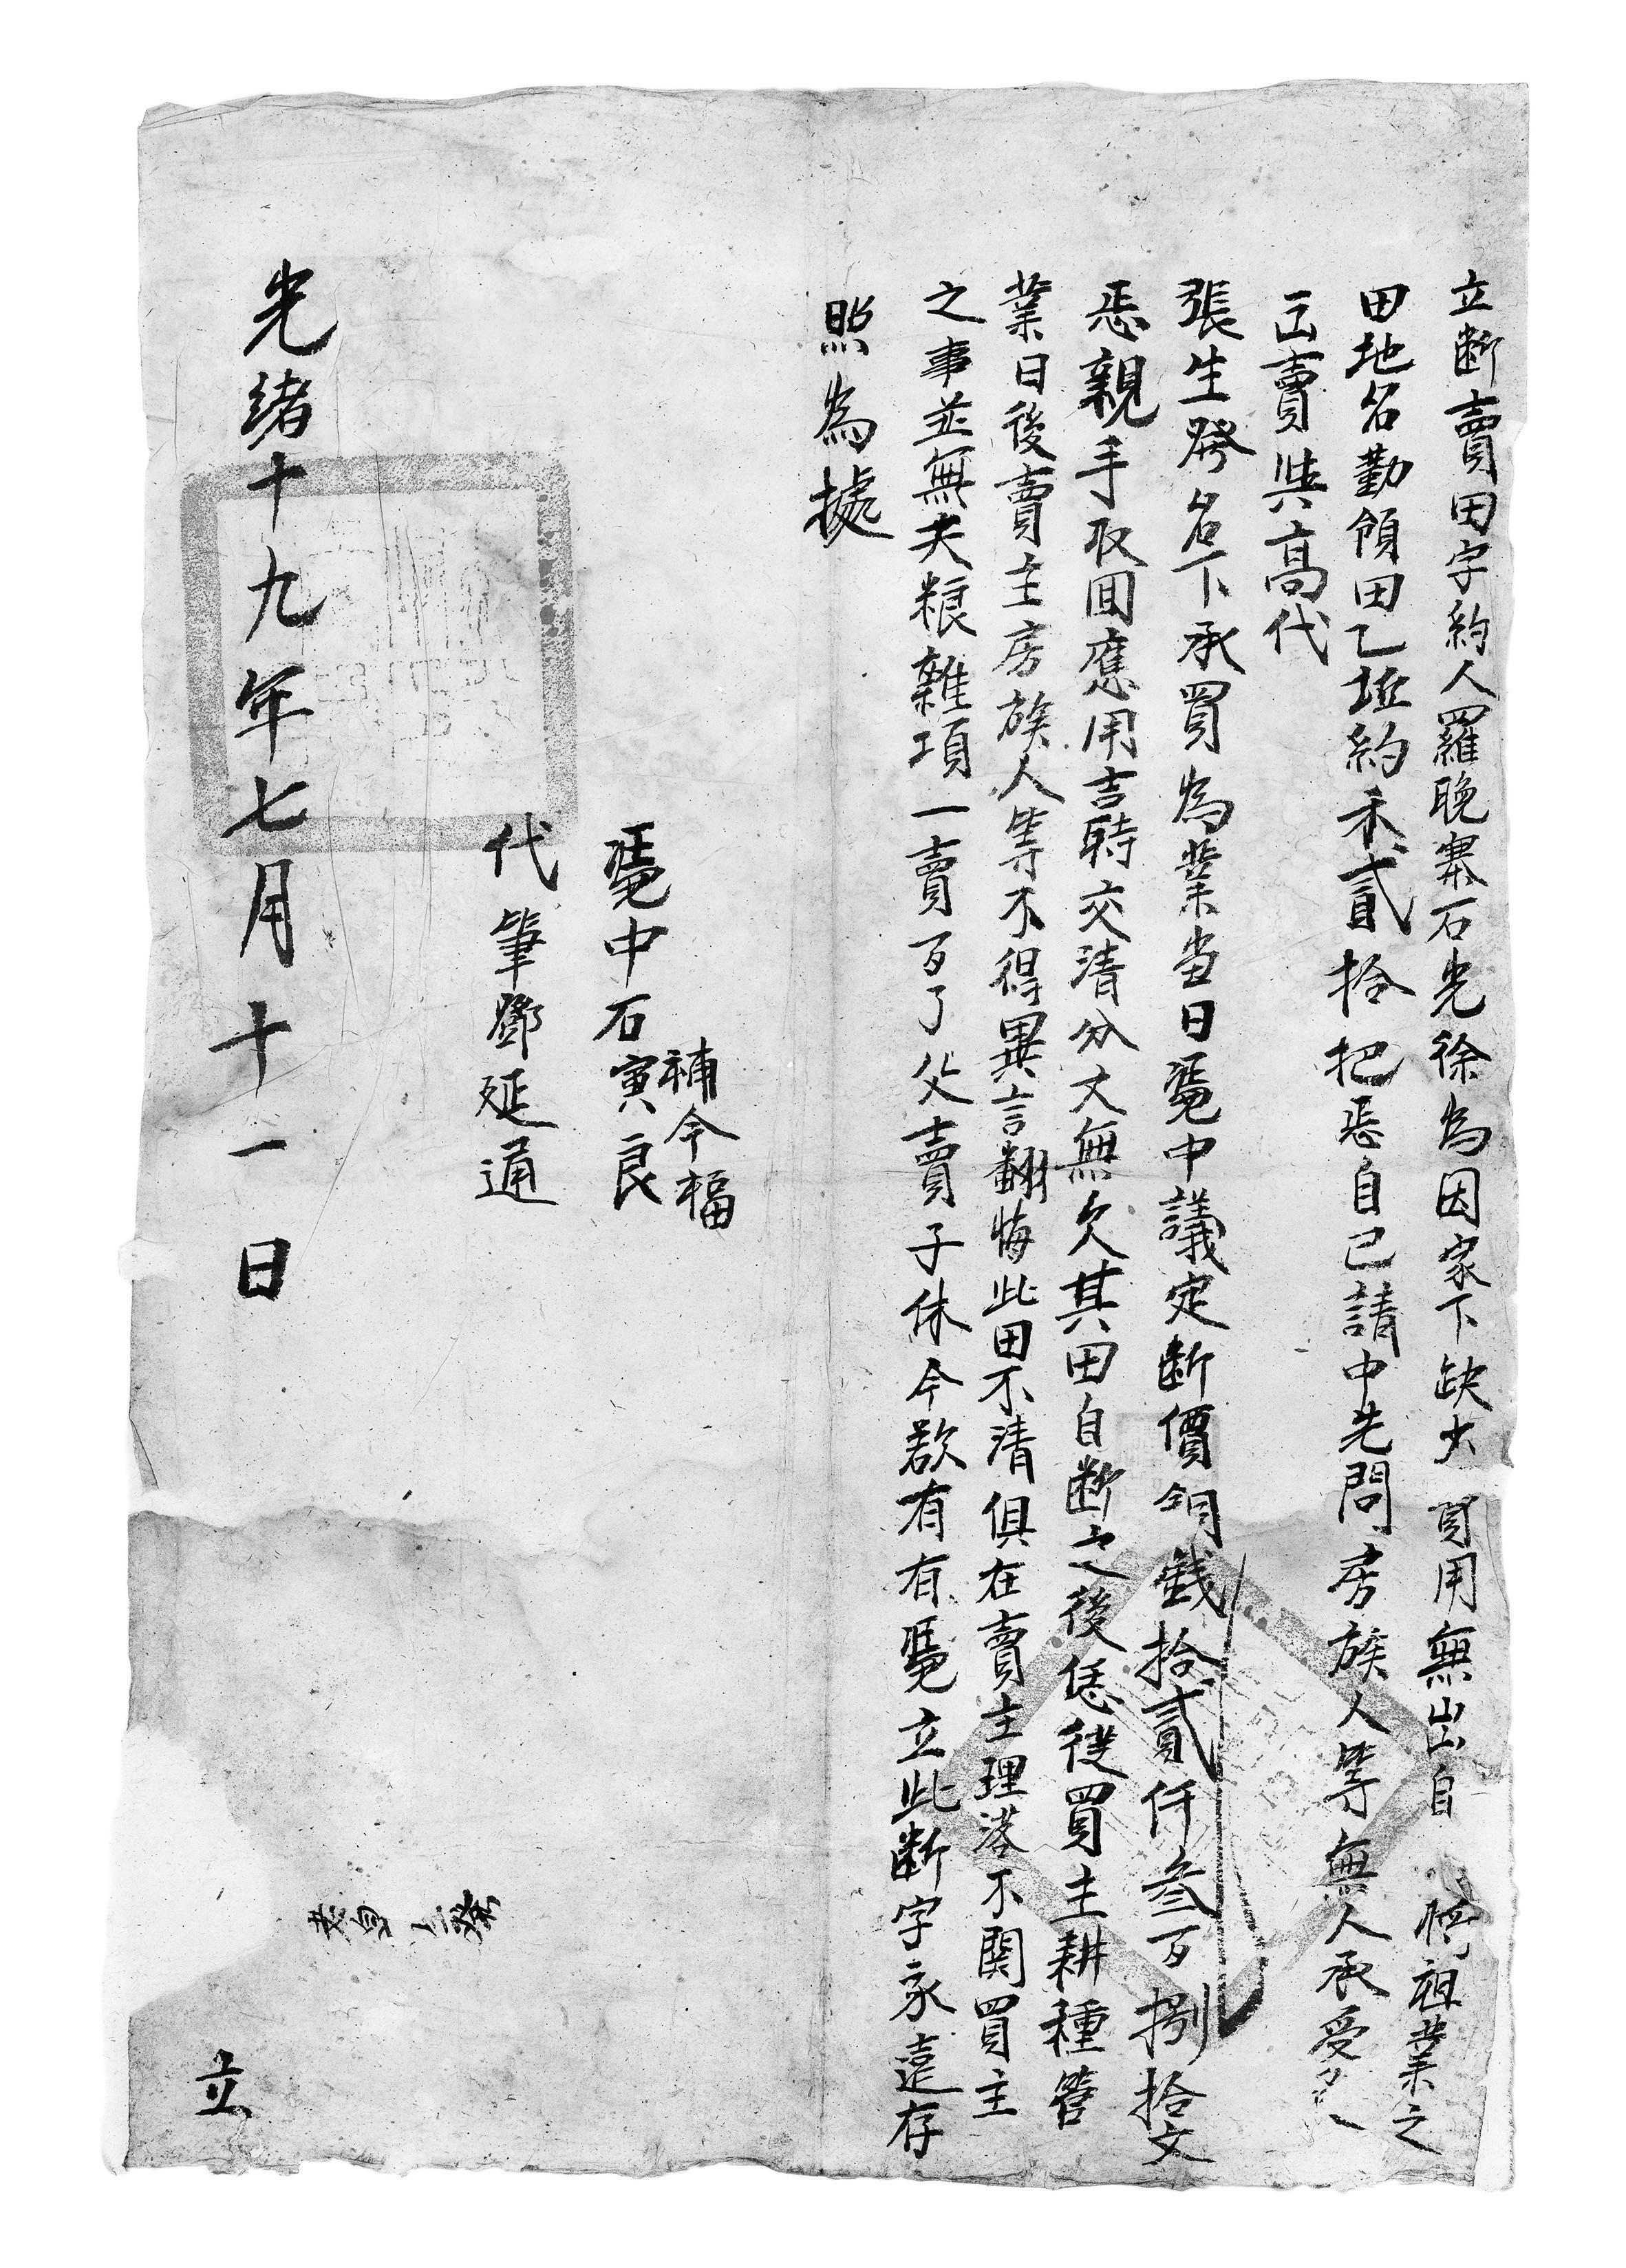 立断賣田字約人羅晚寨石光徐為因家下缺少費用無出自將祖業之
田地名勤領田乙坵約禾貳拾把恁自己請中先問房族人等無人承受
正賣與高代
張生發名下承買為業當日凴中議定断價銅錢拾貳仟叁百捌拾文
恁親手収回應用言時交清分文無欠其田自断之後恁從買主耕種管
業日後賣主房族人等不得異言翻悔此田不清俱在賣主理落不関買主
之事並無夫粮雜項一賣百了父賣子休今欲有有凴立此断字永遠存
照為據
補今福
凴中石寅良
代筆鄧延通
光緒十九年七月十一日
立